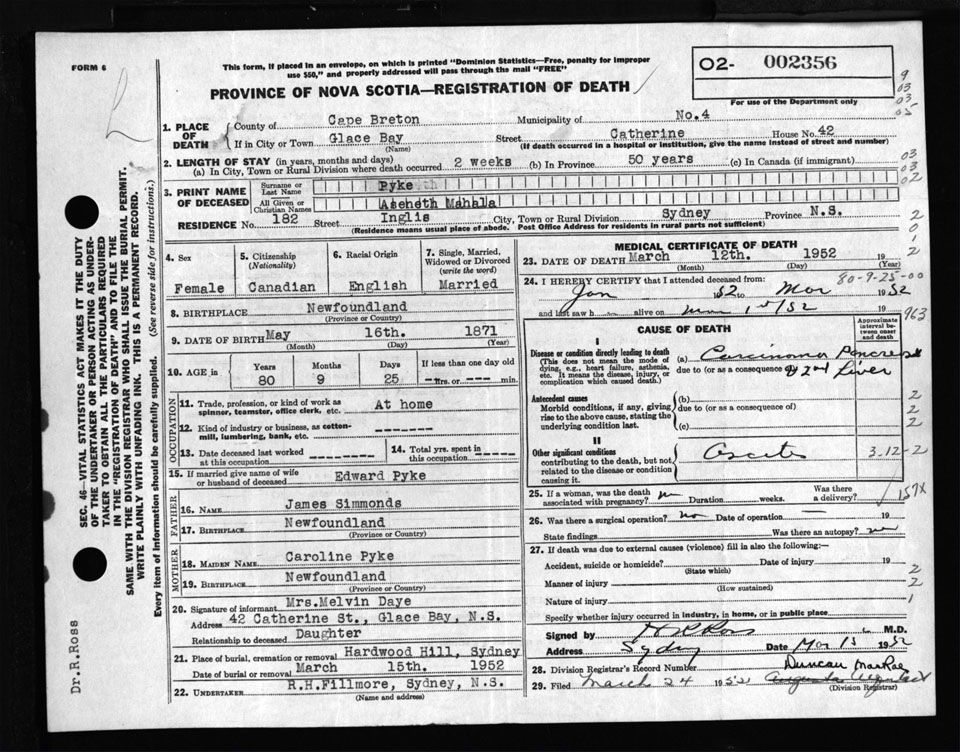 FORM 6
This form, if placed in an envelope, on which is printed "Dominion Statistics—Free, penalty for improper
use $50," and properly addressed will pass through the mail "FREE"
PROVINCE OF NOVA SCOTIA—REGISTRATION OF DEATH
02- 002356
For use of the Department only
9
03
03
05
1. PLACE OF DEATH
County of Cape Breton Municipality of No.4
If in City or Town Glace Bay Street Catherine House No. 42
(Name) (If death occurred in a hospital or institution, give the name instead of street and number)
2. LENGTH OF STAY (in years, months and days)
(a) In City, Town or Rural Division where death occurred 2 weeks (b) In Province 50 years (c) In Canada (if immigrant)
03
03
02
3. PRINT NAME OF DECEASED
Surname or Last Name Pyke
All Given or Christian Names Aseneth Mahala
RESIDENCE No. 182 Street Inglis City, Town or Rural Division Sydney Province N.S.
(Residence means usual place of abode. Post Office Address for residents in rural parts not sufficient)
2
0
1
2
4. Sex
Female
5. Citizenship
(Nationality)
Canadian
6. Racial Origin
English
7. Single, Married,
Widowed or Divorced
(write the word)
Married
8. BIRTHPLACE Newfoundland
(Province or Country)
9. DATE OF BIRTH May 16th. 1871
(Month) (Date) (Year)
10. AGE in
Years Months Days If less than one day old
80 9 25 ---- hrs. or ---- min.
OCCUPATION
11. Trade, profession, or kind of work as
spinner, teamster, office clerk, etc. At home
12. Kind of industry or business, as cotton-
mill, lumbering, bank, etc. -------
13. Date deceased last worked
at this occupation ---------
14. Total yrs. spent in
this occupation ----
15. If married give name of wife
or husband of deceased Edward Pyke
FATHER
16. NAME James Simmonds
17. BIRTHPLACE Newfoundland
(Province or Country)
MOTHER
18. MAIDEN NAME Caroline Pyke
19. BIRTHPLACE Newfoundland
(Province or Country)
20. Signature of informant Mrs.Melvin Daye
Address 42 Catherine St., Glace Bay, N.S.
Relationship to deceased Daughter
21. Place of burial, cremation or removal Hardwood Hill, Sydney
Date of burial or removal March 15th. 1952
22. UNDERTAKER R.H.Fillmore, Sydney, N.S.
(Name and address)
MEDICAL CERTIFICATE OF DEATH
23. DATE OF DEATH March 12th. 1952 19
(Month) (Day) (Year)
80-9-25-00
24. I HEREBY CERTIFY that I attended deceased from:
Jan 52 to Mar 1952
and last saw h alive on 1st/52
963
CAUSE OF DEATH
Approximate
interval be-
tween onset
and death
I
Disease or condition directly leading to death
(This does not mean the mode of
dying, e.g., heart failure, asthenia,
etc. It means the disease, injury, or
complication which caused death.)
(a) Carcinoma Pancreas
due to (or as a consequence of) 2nd Liver
Antecedent causes
Morbid conditions, if any, giving
rise to the above cause, stating the
underlying condition last.
(b)
due to (or as a consequence of)
(c)
2
2
2
II
Other significant conditions
contributing to the death, but not
related to the disease or condition
causing it.
Ascites
3.12-2
157X
25. If a woman, was the death
associated with pregnancy? no Duration weeks. Was there
a delivery?
26. Was there a surgical operation? no Date of operation — 19
State findings Was there an autopsy? no
27. If death was due to external causes (violence) fill in also the following:
Accident, suicide or homicide? Date of injury 19
(State which)
Manner of injury
(How sustained)
Nature of injury
2
2
1
Specify whether injury occurred in industry, in home, or in public place
Signed by Ross M.D.
Address Sydney Date Mar 15 1952
28. Division Registrar's Record Number
Duncan MacRae
29. Filed March 24 1952
(Division Registrar)
SEC. 46—VITAL STATISTICS ACT MAKES IT THE DUTY
OF THE UNDERTAKER OR PERSON ACTING AS UNDER-
TAKER TO OBTAIN ALL THE PARTICULARS REQUIRED
IN THE "REGISTRATION OF DEATH" AND TO FILE THE
SAME WITH THE DIVISION REGISTRAR WHO SHALL ISSUE THE BURIAL PERMIT.
WRITE PLAINLY WITH UNFADING INK. THIS IS A PERMANENT RECORD.
Every item of information should be carefully supplied. (See reverse side for instructions.)
Dr.R.Ross